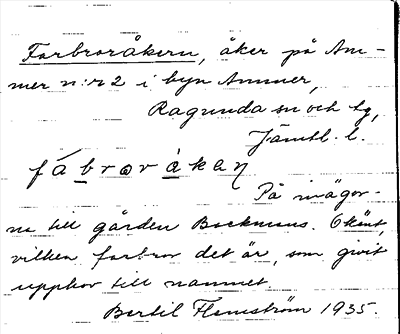 Farbroråkern, åker på Am-
mer n:r 2 i byn Ammer,
Ragunda sn och tg,
Jämtl. l.
fábroràkaɳ
På inägor-
na till gården Backmans. Okänt,
vilken farbror det är, som givit
upphov till namnet.
Bertil Flemström 1935.